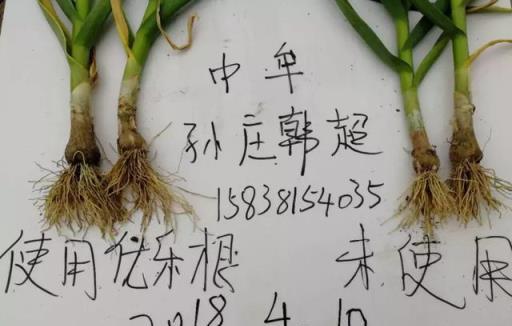 中牟
孙庄韩超
15838154035
使用优乐根 未使用
2018.4.10